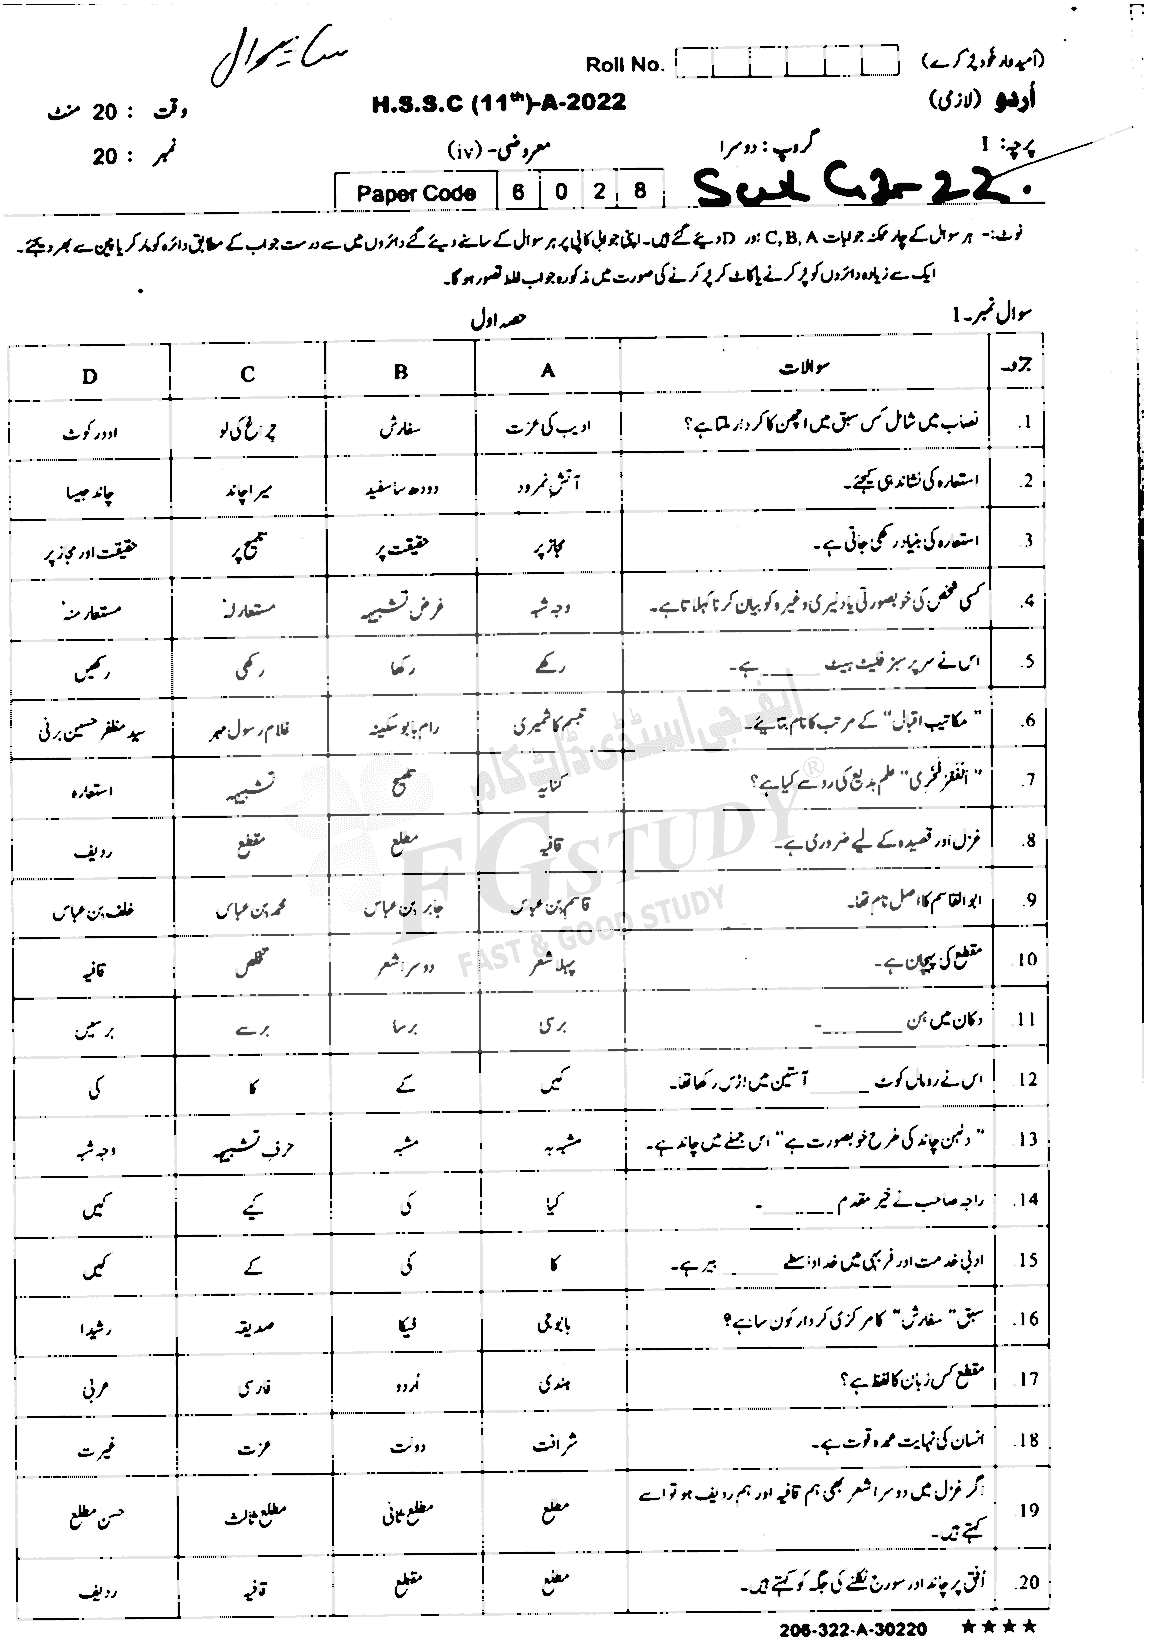 ساہیوال
Roll No. (امیدوار خود پُر کرے)
اُردو (لازمی) H.S.S.C (11th)-A-2022 وقت : 20 منٹ
پرچہ: I گروپ: دوسرا معروضی-(iv) نمبر : 20
Paper Code 6 0 2 8
نوٹ:- ہر سوال کے چار ممکنہ جوابات C, B, A اور D دیئے گئے ہیں۔ اپنی جوابی کاپی پر ہر سوال کے سامنے دیئے گئے دائروں میں سے درست جواب کے مطابق دائرہ کو مارکر یا پین سے بھر دیجئے۔
ایک سے زیادہ دائروں کو پُر کرنے یا کاٹ کر پُر کرنے کی صورت میں مذکورہ جواب غلط تصور ہوگا۔
سوال نمبر-1 حصہ اول
سوالات A B C D
1. نصاب میں شامل کس سبق میں اچھن کا کردار ملتا ہے؟ ادیب کی عزت سفارش چراغ کی لو اوورکوٹ
2. استعارہ کی نشاندہی کیجئے۔ آتشِ نمرود دودھ سا سفید میرا چاند چاند جیسا
3. استعارہ کی بنیاد رکھی جاتی ہے۔ مجاز پر حقیقت پر تلمیح پر حقیقت اور مجاز پر
4. کسی شخص کی خوبصورتی یا دلیری وغیرہ کو بیان کرنا کہلاتا ہے۔ وجہ شبہ غرض تشبیہہ مستعار لہٗ مستعار منہٗ
5. اس نے سر پر سبز فلیٹ ہیٹ ____ ہے۔ رکھے رکھا رکھی رکھیں
6. "مکاتیب اقبال" کے مرتب کا نام بتائیے۔ تبسم کاشمیری رام بابو سکینہ غلام رسول مہر سید مظفر حسین برنی
7. "اَلفَقرُ فَخرِی" علم بدیع کی رو سے کیا ہے؟ کنایہ تلمیح تشبیہہ استعارہ
8. غزل اور قصیدہ کے لیے ضروری ہے۔ قافیہ مطلع مقطع ردیف
9. ابوالقاسم کا اصل نام تھا۔ قاسم بن عباس جابر بن عباس محمد بن عباس خلف بن عباس
10. مقطع کی پہچان ہے۔ پہلا شعر دوسرا شعر تخلص قافیہ
11. دکان میں ہن ______ - بری برسا برسے برسیں
12. اس نے رومال کوٹ ____ آستین میں اڑس رکھا تھا۔ کیں کے کا کی
13. "دلہن چاند کی طرح خوبصورت ہے" اس جملے میں چاند ہے۔ مشبہ بہ مشبہ حرفِ تشبیہہ وجہ شبہ
14. راجہ صاحب نے خیر مقدم ____ - کیا کی کیے کیں
15. ادبی خدمت اور فربہی میں خدا واسطے ____ بیر ہے۔ کا کی کے کیں
16. سبق "سفارش" کا مرکزی کردار کون سا ہے؟ بابو جی فیکا صدیقہ رشیدا
17. مقطع کس زبان کا لفظ ہے؟ ہندی اُردو فارسی عربی
18. انسان کی نہایت عمدہ قوت ہے۔ شرافت دولت عزت غیرت
19. اگر غزل میں دوسرا شعر بھی ہم قافیہ اور ہم ردیف ہو تو اسے
کہتے ہیں۔ مطلع مطلع ثانی مطلع ثالث حسن مطلع
20. اُفق پر چاند اور سورج نکلنے کی جگہ کو کہتے ہیں۔ مطلع مقطع قافیہ ردیف
206-322-A-30220 ★★★★
ایف جی اسٹڈی ڈاٹ کام
FGSTUDY®
FAST & GOOD STUDY